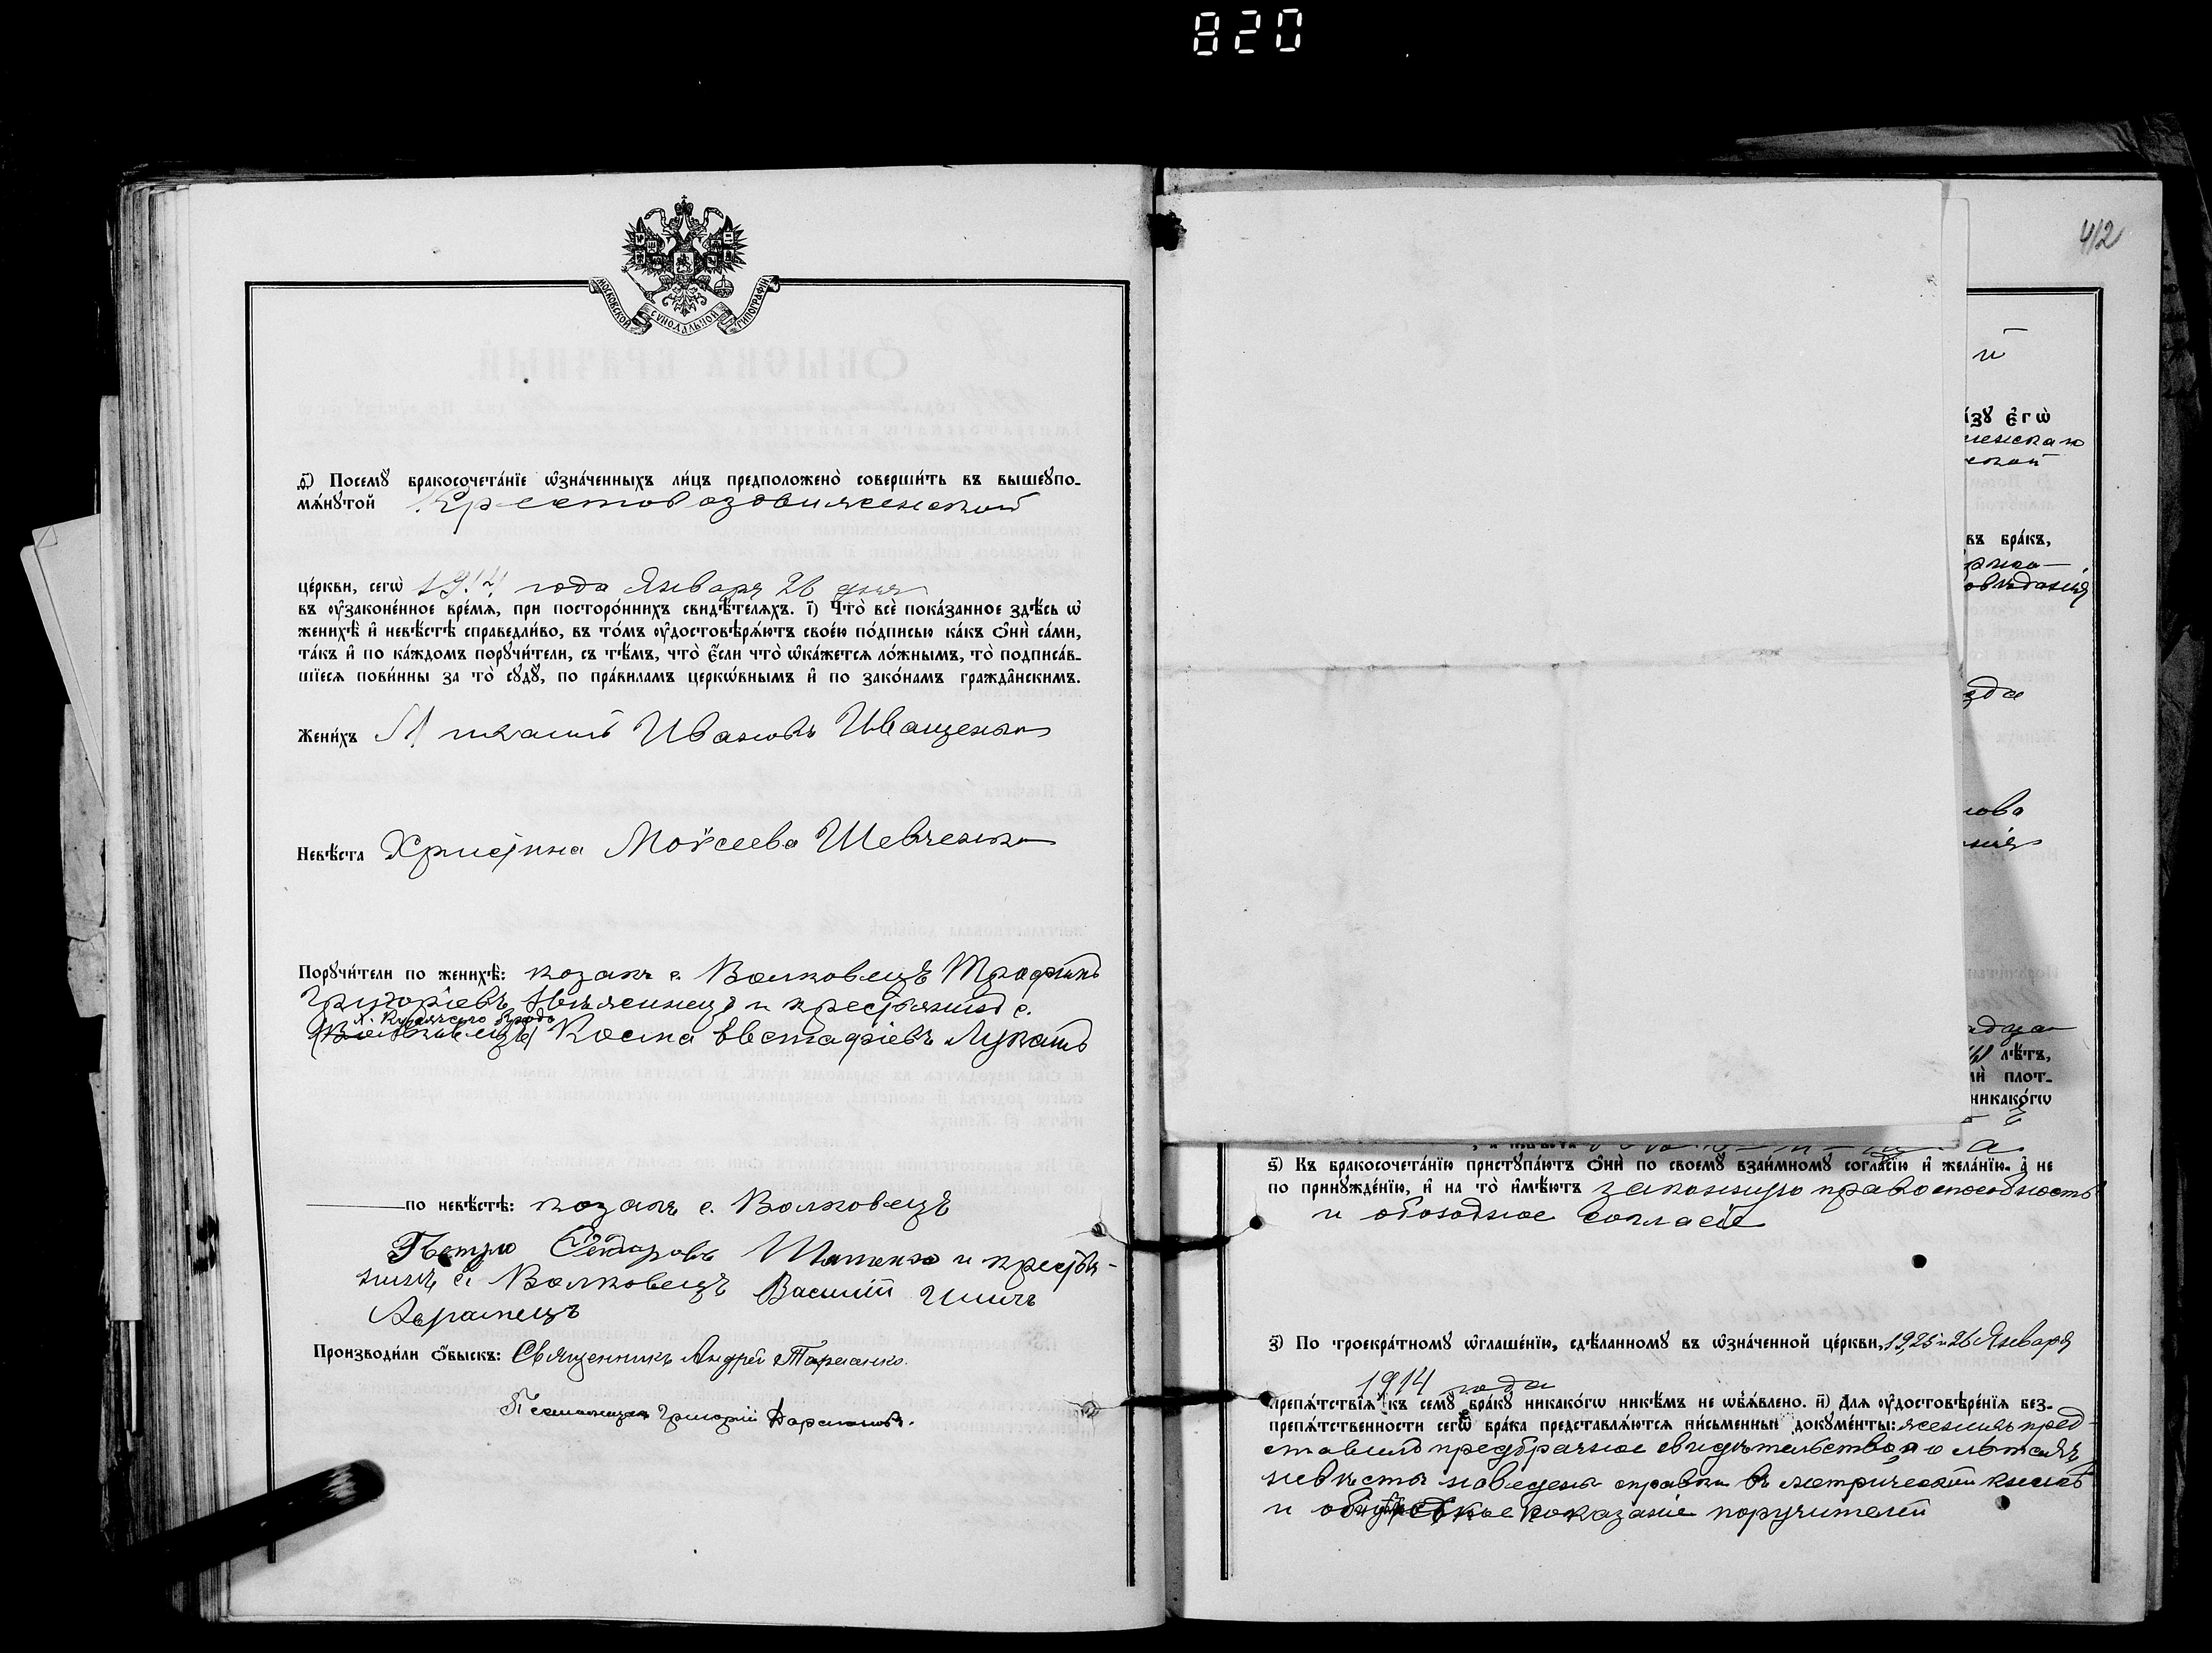 820
МОСКОВСКОЙ СѴНОДАЛЬНОЙ ТИПОГРАФІИ
д҃) Посемꙋ̀ бракосочета́нїе ѡ҆зна́ченныхъ ли́цъ предположено̀ соверши́ть въ вышеꙋпо-
мѧ́нꙋтой Крестовоздвиженской
це́ркви, сегѡ̀ 1914 года Января 26 дня
въ ᲂу҆законе́нное вре́мѧ, при посторо́ннихъ свидѣ́телѧхъ. і҃) Что̀ всѐ пока́занное здѣ́сь ѡ҆
женихѣ̀ и҆ невѣ́стѣ справедли́во, въ то́мъ ᲂу҆достовѣрѧ́ютъ свое́ю по́дписью ка́къ ѻ҆нѝ са́ми,
та́къ и҆ по ка́ждомъ порꙋчи́тели, съ тѣ́мъ, что̀ є҆́сли что̀ ѡ҆ка́жетсѧ ло́жнымъ, то̀ подписа́в-
шїесѧ пови́нны за то̀ сꙋдꙋ̀, по пра́виламъ церкѡ́внымъ и҆ по зако́намъ гражда́нскимъ.
Жени́хъ Михаилъ Ивановъ Иващенко
Невѣ́ста Христина Моѵсеева Шевченко
Порꙋчи́тели по женихѣ̀: козакъ с. Волковецъ Трофимъ
Григоріевъ и крестьянинъ с.
х.
Волковецъ Косма Евстафіевъ Лукашъ
по невѣ́стѣ: козакъ с. Волковецъ
Петро Шатенко и крестья-
нинъ с. Волковецъ Василій Ильичъ
Абрамецъ
Производи́ли ѻ҆́быскъ: Священникъ Андрей
Псаломщикъ Григорій
412
й
а́зꙋ є҆гѡ̀
женскаю
ской
въ бра́къ,
овѣданія
зда
лѣ́тъ,
ли плот-
никако́гѡ
а
ѕ҃) Къ бракосочета́нїю пристꙋпа́ютъ ѻ҆нѝ по своемꙋ̀ взаи́мномꙋ согла́сїю и҆ жела́нїю, а҆ не
по принꙋжде́нїю, и҆ на то̀ и҆мѣ́ютъ законную правоспособность
и обоюдное согласіе
з҃) По троекра́тномꙋ ѡ҆глаше́нїю, сдѣ́ланномꙋ въ ѡ҆зна́ченной це́ркви, 19, 25 и 26 Января
1914 года
препѧ́тствїѧ къ семꙋ̀ бра́кꙋ никако́гѡ никѣ́мъ не ѡ҆б̾ѧ́влено. и҃) Длѧ ᲂу҆достовѣре́нїѧ без-
препѧ́тственности сегѡ̀ бра́ка представлѧ́ютсѧ пи́сьменныи докꙋме́нты: женихъ пред-
ставилъ предбрачное свидѣтельство, а о лѣтахъ
невѣсты наведена справка въ метрической книгѣ
и показаніе поручителей